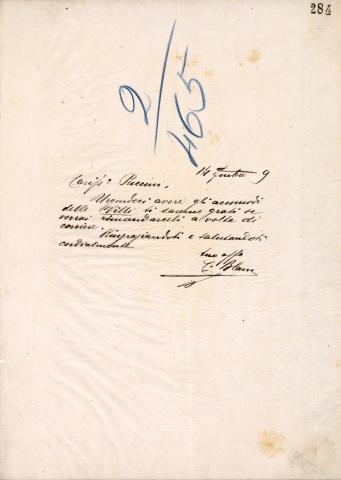 284
2/465
14 9mbre 9
Cariss.o Puccini,
Urendoci avere gli accomodi
delle Willi ti saremo grati se
vorrai rimandarceli a volta di
corriere.
Ringraziandoti e salutandoti
cordialmente
tuo aff.
C. Blanc